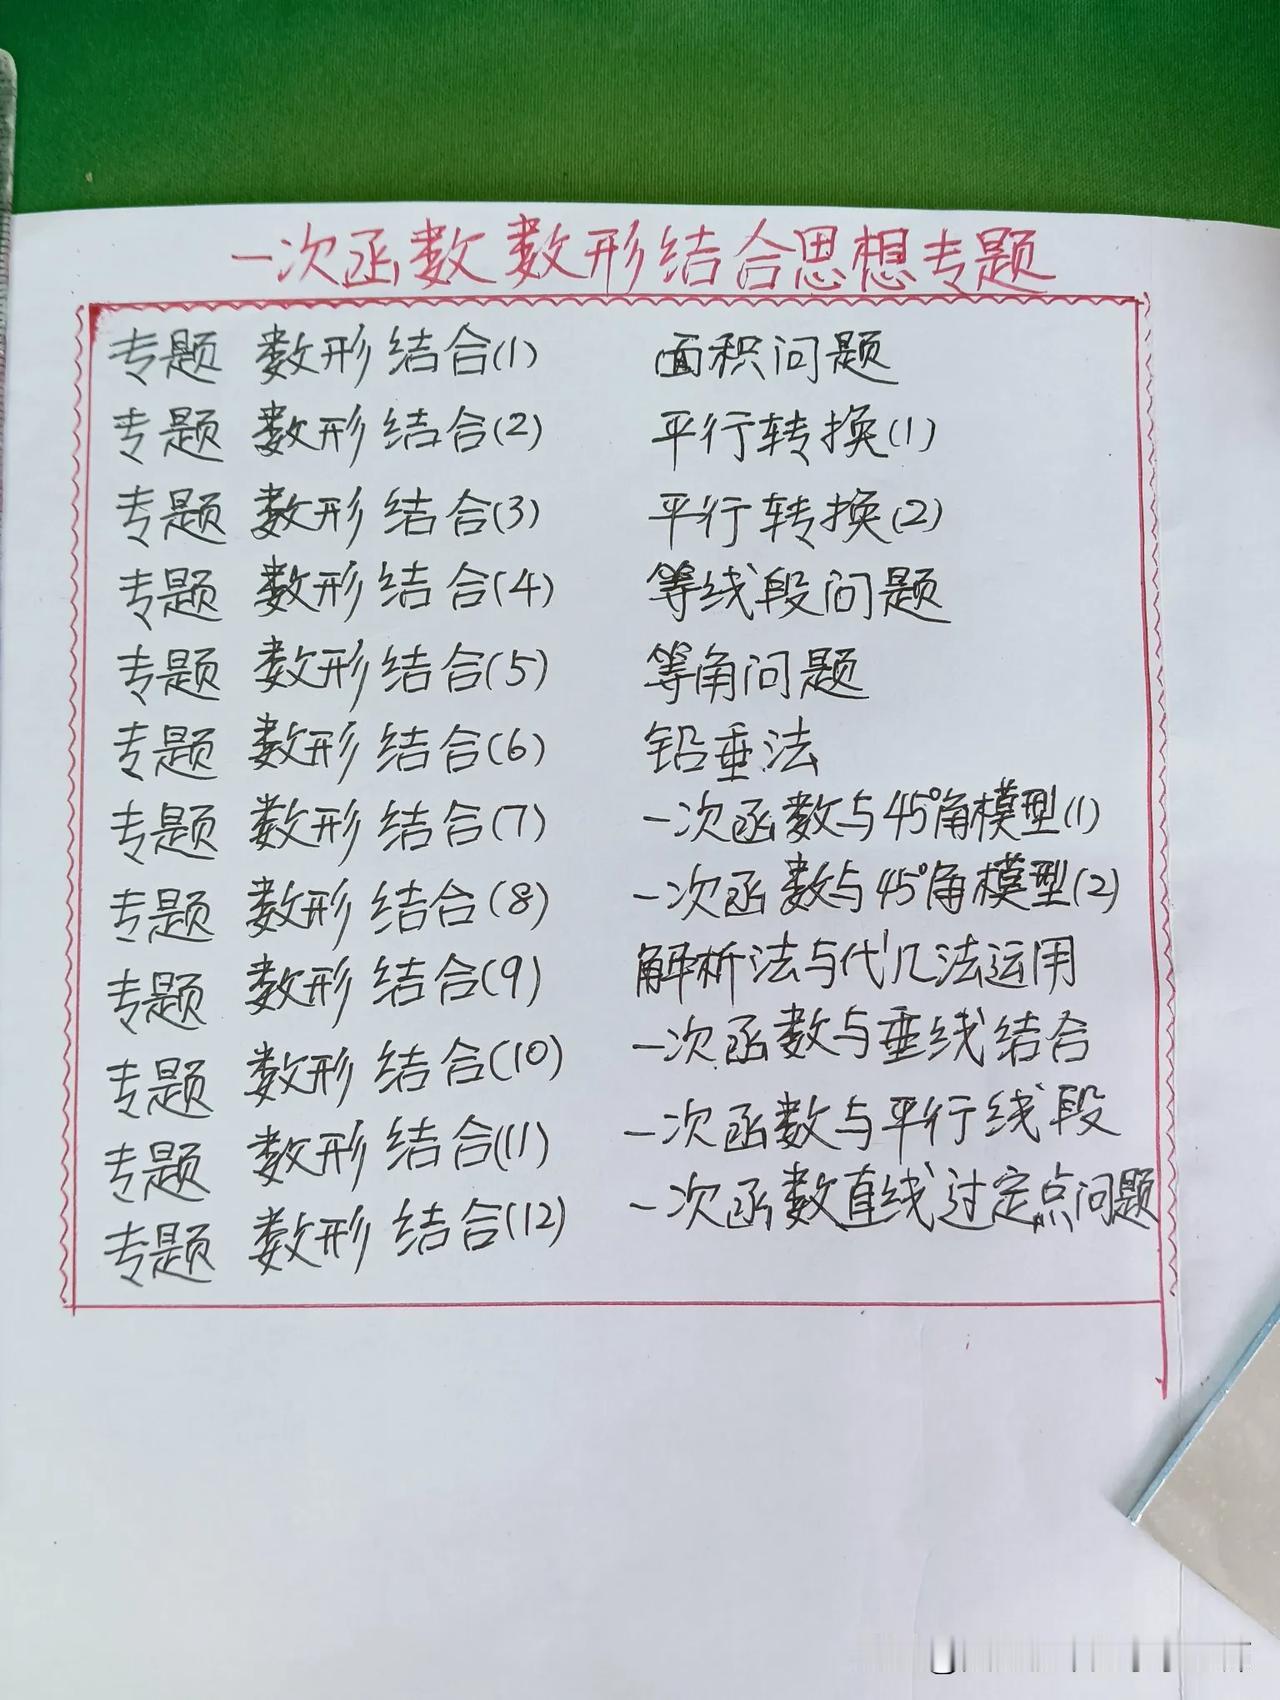 一次函数数形结合思想专题
专题 数形结合(1) 面积问题
专题 数形结合(2) 平行转换(1)
专题 数形结合(3) 平行转换(2)
专题 数形结合(4) 等线段问题
专题 数形结合(5) 等角问题
专题 数形结合(6) 铅垂法
专题 数形结合(7) 一次函数与45°角模型(1)
专题 数形结合(8) 一次函数与45°角模型(2)
专题 数形结合(9) 解析法与代几法运用
专题 数形结合(10) 一次函数与垂线结合
专题 数形结合(11) 一次函数与平行线段
专题 数形结合(12) 一次函数直线过定点问题